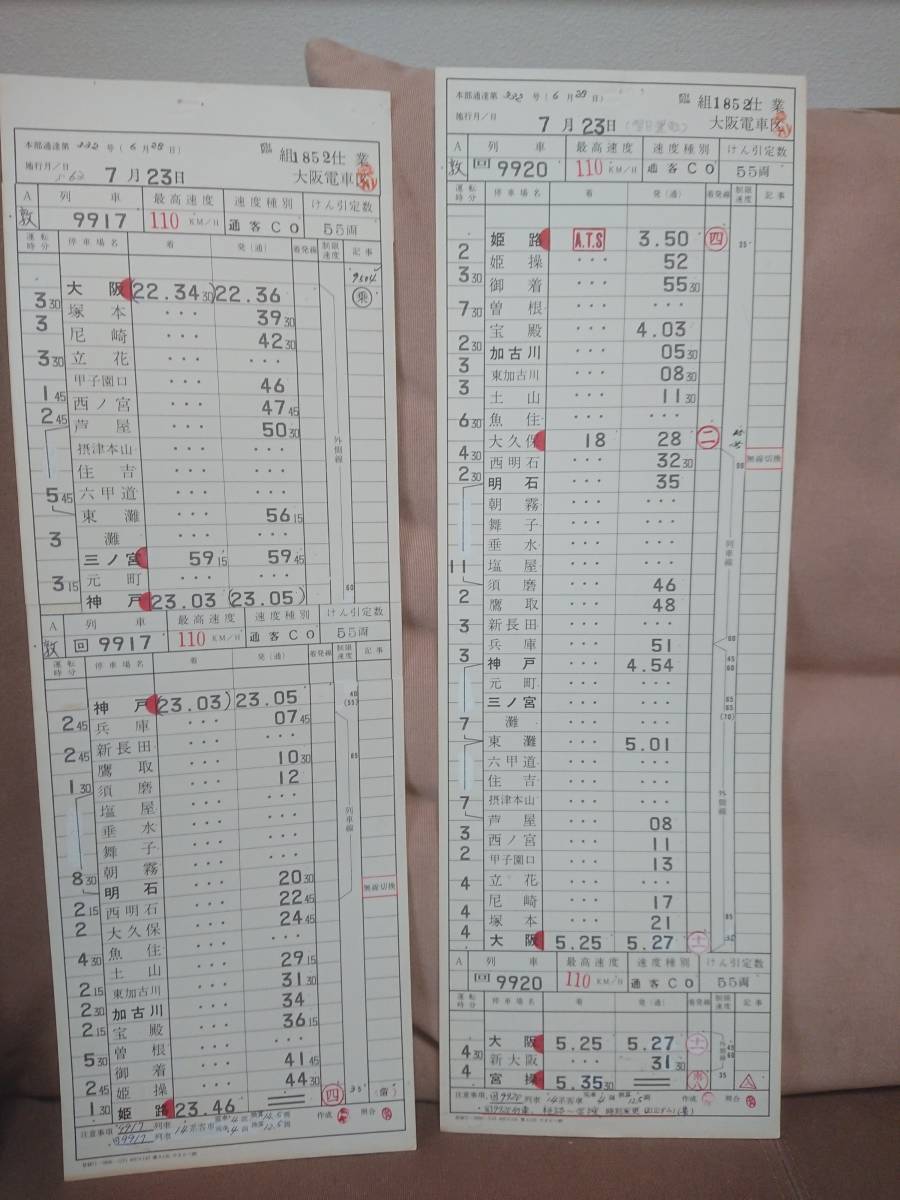 本部通達第332号(6月29日)
臨 組1852仕業
施行月/日
S62 7月23日
大阪電車区
A 列車 最高速度 速度種別 けん引定数
敦 9917 110 KM/H 通客C0 55両
運転時分 停車場名 着 発(通) 着発線 制限速度 記事
大阪 (22.34 30) 22.36 乗
3 30 塚本 ・・・ 39 30
3 尼崎 ・・・ 42 30
立花 ・・・ ・・・
3 30 甲子園口 ・・・ 46
1 45 西ノ宮 ・・・ 47 45
2 45 芦屋 ・・・ 50 30
外側線
摂津本山 ・・・ ・・・
住吉 ・・・ ・・・
六甲道 ・・・ ・・・
5 45 東灘 ・・・ 56 15
灘 ・・・ ・・・
3 三ノ宮 59 15 59 45
元町 ・・・ ・・・
3 15 神戸 23.03 (23.05) 60
A 列車 最高速度 速度種別 けん引定数
敦 回 9917 110 KM/H 通客C0 55両
運転時分 停車場名 着 発(通) 着発線 制限速度 記事
神戸 (23.03) 23.05 40 (55)
2 45 兵庫 ・・・ 07 45
新長田 ・・・ ・・・
2 45 鷹取 ・・・ 10 30 65
1 30 須磨 ・・・ 12
塩屋 ・・・ ・・・
列車線
垂水 ・・・ ・・・
舞子 ・・・ ・・・
朝霧 ・・・ ・・・
8 30 明石 ・・・ 20 30 無線切換
2 15 西明石 ・・・ 22 45
2 大久保 ・・・ 24 45
魚住 ・・・ ・・・
4 30 土山 ・・・ 29 15
2 15 東加古川 ・・・ 31 30
2 30 加古川 ・・・ 34
2 15 宝殿 ・・・ 36 15
曽根 ・・・ ・・・
5 30 御着 ・・・ 41 45
2 45 姫操 ・・・ 44 30
1 30 姫路 23.46 四 35 (留)
注意事項 9917列車
回9917列車 14系客車 現車4両 換算12.5両 作成 照合
本部通達第332号(6月29日)
臨 組1852仕業
施行月/日
7月23日
大阪電車区
A 列車 最高速度 速度種別 けん引定数
敦 回 9920 110 KM/H 通客C0 55両
運転時分 停車場名 着 発(通) 着発線 制限速度 記事
姫路 A.T.S 3.50 四 35
2 姫操 ・・・ 52
3 30 御着 ・・・ 55 30
曽根 ・・・ ・・・
7 30 宝殿 ・・・ 4.03
2 30 加古川 ・・・ 05 30
3 東加古川 ・・・ 08 30
3 土山 ・・・ 11 30
魚住 ・・・ ・・・
6 30 大久保 18 28 二
4 30 西明石 ・・・ 32 30 無線切換
2 30 明石 ・・・ 35
朝霧 ・・・ ・・・
舞子 ・・・ ・・・
垂水 ・・・ ・・・
列車線
塩屋 ・・・ ・・・
11 須磨 ・・・ 46
2 鷹取 ・・・ 48
新長田 ・・・ ・・・
3 兵庫 ・・・ 51
3 神戸 ・・・ 4.54 45 60
元町 ・・・ ・・・
三ノ宮 ・・・ ・・・ 65 (70)
灘 ・・・ ・・・
7 東灘 ・・・ 5.01
六甲道 ・・・ ・・・
住吉 ・・・ ・・・
外側線
摂津本山 ・・・ ・・・
7 芦屋 ・・・ 08
3 西ノ宮 ・・・ 11
2 甲子園口 ・・・ 13
立花 ・・・ ・・・
4 尼崎 ・・・ 17
4 塚本 ・・・ 21
4 大阪 5.25 5.27 土
A 列車 最高速度 速度種別 けん引定数
回 9920 110 KM/H 通客C0 55両
運転時分 停車場名 着 発(通) 着発線 制限速度 記事
大阪 5.25 5.27 土 45
4 30 新大阪 ・・・ 31 30 外側線 60
4 宮操 5.35 30 35
注意事項 回9920列車 14系客車 現車4両 換算12.5両 作成 照合